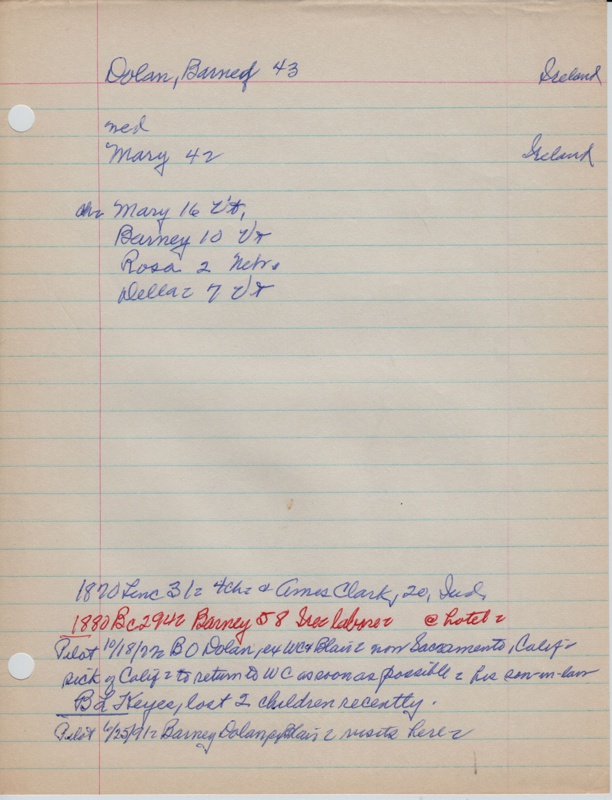 Dolan, Barney 43 Ireland
Mary 42 Ireland
ch= Mary 16 Vt,
Barney 10 Vt
Rosa 2 Nebr.
Della = 7 Vt
1870 Linc 31= 4ch= & Amos Clark, 20, Ind,
1880 Bc294= Barney 58 Ire= laborer @ hotel =
Pilot 10/18/77= B O Dolan, ex WC & Blair = now Sacramento, Calif =
sick of Calif = to return to WC as soon as possible = his son-in-law
B L Keyes, lost 2 children recently.
Pilot Barney Dolan Blair = visits here =